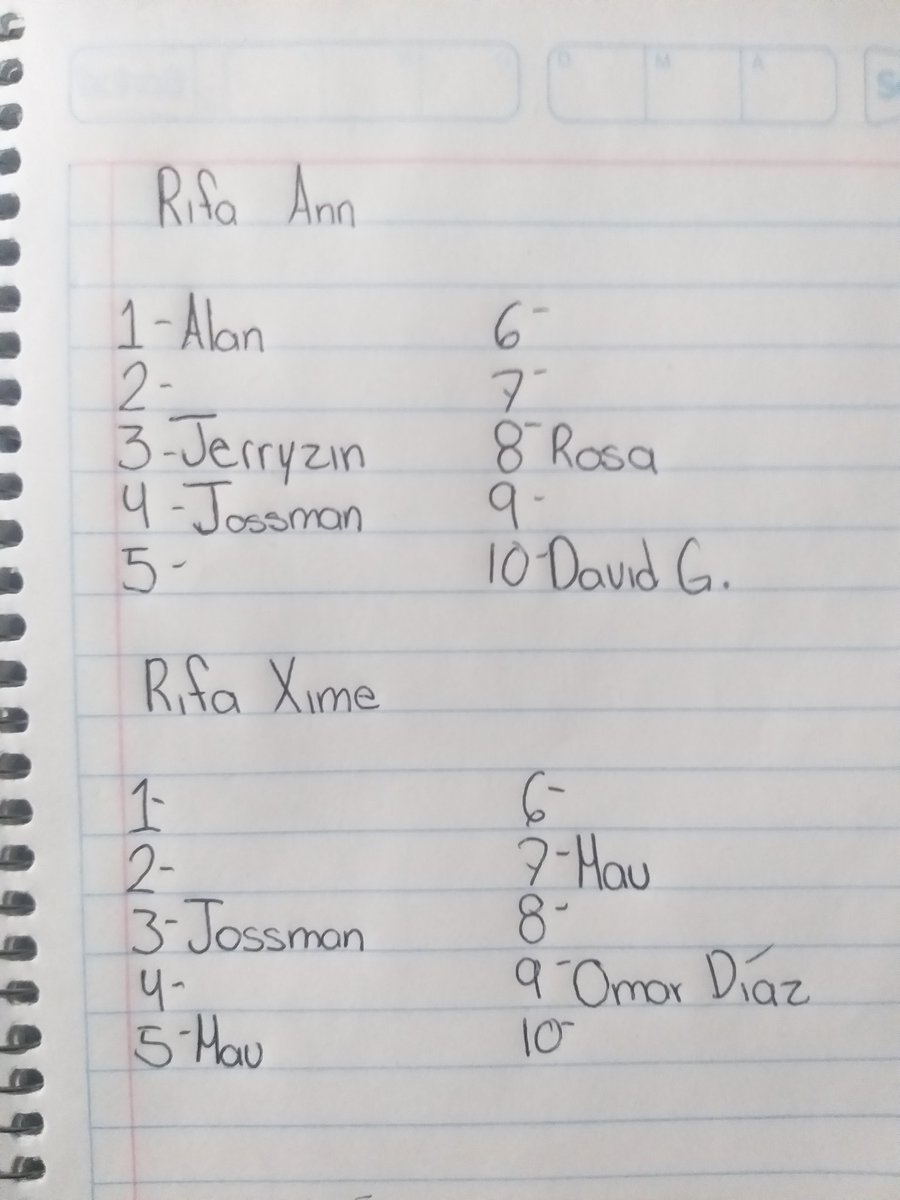 D M A
Rifa Ann
1- Alan
2-
3- Jerryzin
4- Jossman
5-
6-
7-
8- Rosa
9-
10- David G.
Rifa Xime
1-
2-
3- Jossman
4-
5- Mau
6-
7- Mau
8-
9- Omar Díaz
10-